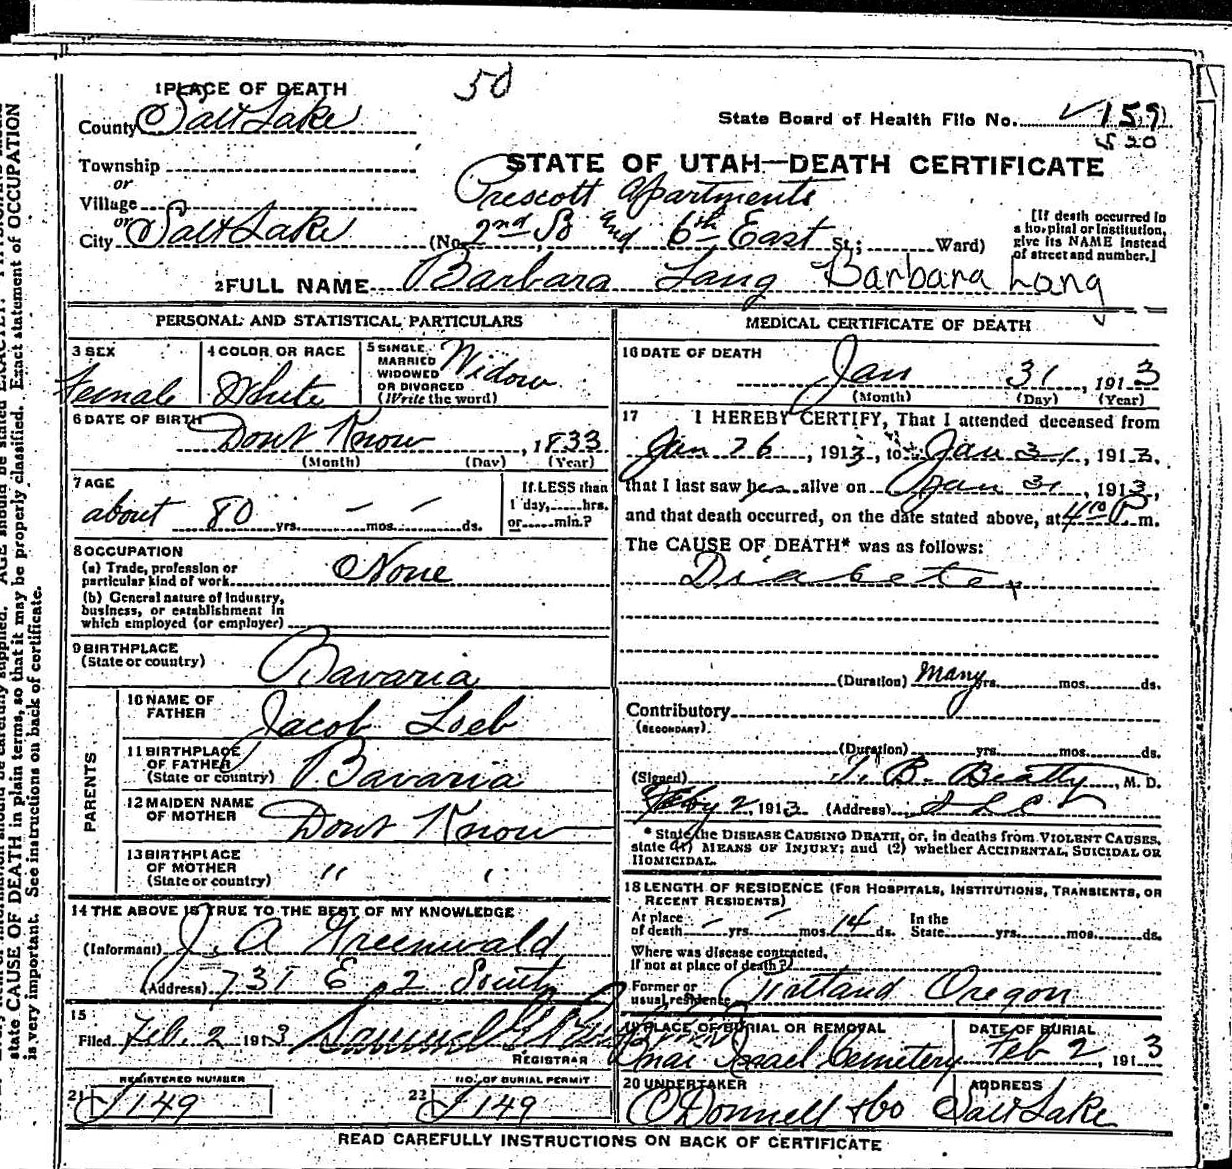 50
1 PLACE OF DEATH
County Salt Lake
State Board of Health File No. 159
520
Township
or
Village
or
City Salt Lake
STATE OF UTAH—DEATH CERTIFICATE
Prescott Apartments
(No. 2nd So and 6th East St.; Ward)
[If death occurred in
a hospital or institution,
give its NAME instead
of street and number.]
2 FULL NAME Barbara Lang Barbara Lang
PERSONAL AND STATISTICAL PARTICULARS
3 SEX
Female
4 COLOR OR RACE
White
5 SINGLE
MARRIED
WIDOWED
OR DIVORCED
(Write the word)
Widow
6 DATE OF BIRTH
Dont Know, 1833
(Month) (Day) (Year)
7 AGE
about 80 yrs. — mos. — ds.
If LESS than
1 day, hrs.
or min.?
8 OCCUPATION
(a) Trade, profession or
particular kind of work None
(b) General nature of industry,
business, or establishment in
which employed (or employer)
9 BIRTHPLACE
(State or country)
Bavaria
PARENTS
10 NAME OF
FATHER
Jacob Loeb
11 BIRTHPLACE
OF FATHER
(State or country)
Bavaria
12 MAIDEN NAME
OF MOTHER
Dont Know
13 BIRTHPLACE
OF MOTHER
(State or country) " "
14 THE ABOVE IS TRUE TO THE BEST OF MY KNOWLEDGE
(Informant) J. A Greenwald
(Address) 737 E 2 South
15
Filed Feb. 2 1913
REGISTRAR
REGISTERED NUMBER
21 J149
NO. OF BURIAL PERMIT
22 J149
MEDICAL CERTIFICATE OF DEATH
16 DATE OF DEATH
Jan 31, 1913
(Month) (Day) (Year)
17 I HEREBY CERTIFY, That I attended deceased from
Jan 26, 1913, to Jan 31, 1913,
that I last saw her alive on Jan 31, 1913,
and that death occurred, on the date stated above, at 4 00 P. m.
The CAUSE OF DEATH* was as follows:
Diabetes
(Duration) Many yrs. mos. ds.
Contributory
(SECONDARY)
(Duration) yrs. mos. ds.
(Signed) T. B. Beatty, M. D.
Feby 2, 1913 (Address) S L C
* State the DISEASE CAUSING DEATH, or, in deaths from VIOLENT CAUSES,
state (1) MEANS OF INJURY; and (2) whether ACCIDENTAL, SUICIDAL OR
HOMICIDAL.
18 LENGTH OF RESIDENCE (FOR HOSPITALS, INSTITUTIONS, TRANSIENTS, OR
RECENT RESIDENTS)
At place
of death — yrs. — mos. 14 ds.
In the
State yrs. mos. ds.
Where was disease contracted,
If not at place of death?
Former or
usual residence Portland Oregon
19 PLACE OF BURIAL OR REMOVAL
Bnai Israel Cemetery
DATE OF BURIAL
Feb 2, 1913
20 UNDERTAKER
O'Donnell & Co
ADDRESS
Salt Lake
READ CAREFULLY INSTRUCTIONS ON BACK OF CERTIFICATE
AGE should be stated
Exact statement of OCCUPATION
state CAUSE OF DEATH in plain terms, so that it may be properly classified.
is very important. See instructions on back of certificate.